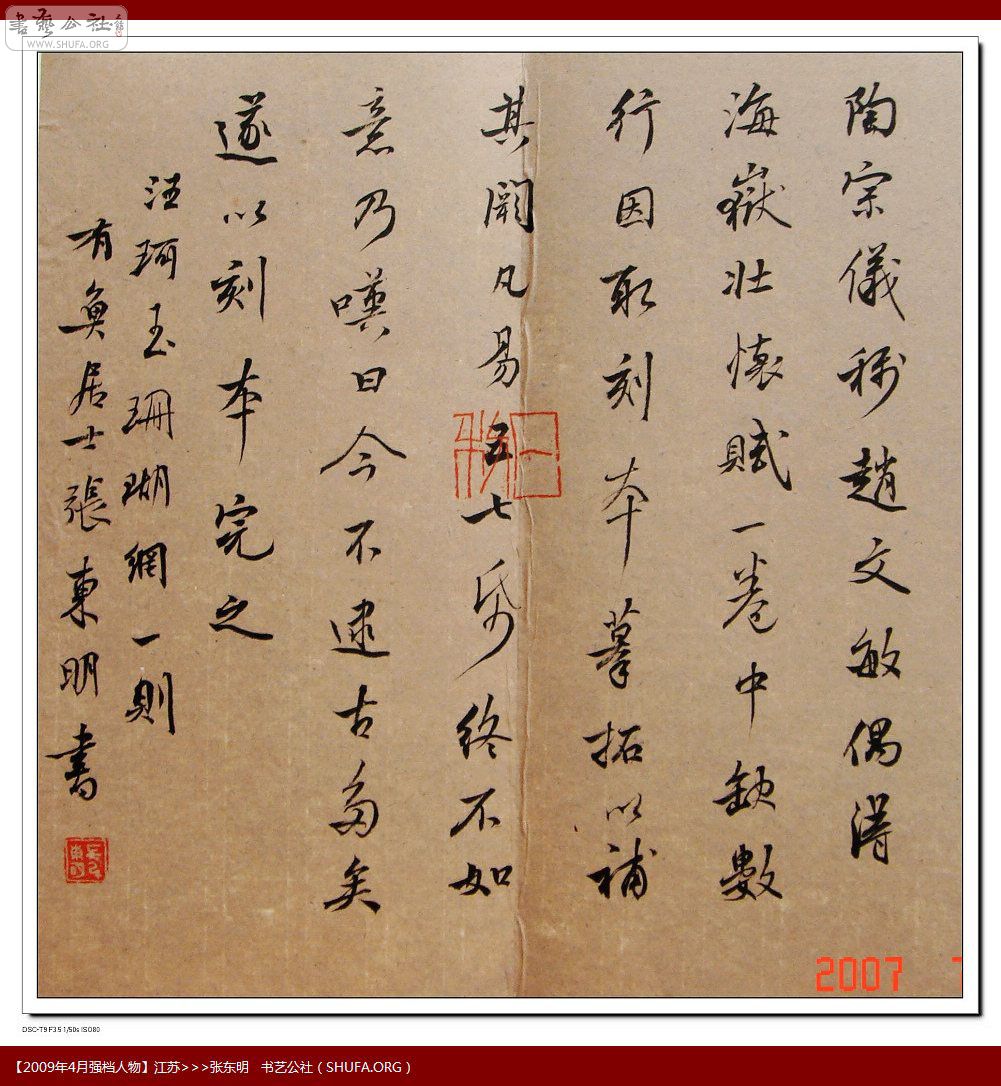 書藝公社
WWW.SHUFA.ORG
陶宗儀称趙文敏偶得
海嶽壯懷賦一卷中缺數
行因取刻本摹拓以補
其闕凡易五七帋終不如
意乃嘆曰今不逮古多矣
遂以刻本完之
汪珂玉珊瑚網一則
有奐居士張東明書
2007 7
DSC-T9 F3.5 1/50s ISO80
【2009年4月强档人物】江苏>>>张东明 书艺公社（SHUFA.ORG）